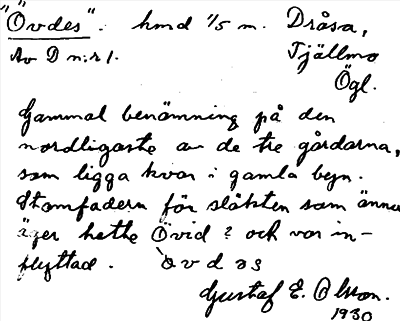 "Övdes". hmd 1/5 m. Dråsa,
Av D n:r 1. Tjällmo
Ögl.
Gammal benämning på den
nordligaste av de tre gårdarna,
som ligga kvar i gamla byn.
Stamfadern för släkten som ännu
äger hette Övid? och var in-
flyttad. ö v d ə s
Gustaf E. Olsson.
1930